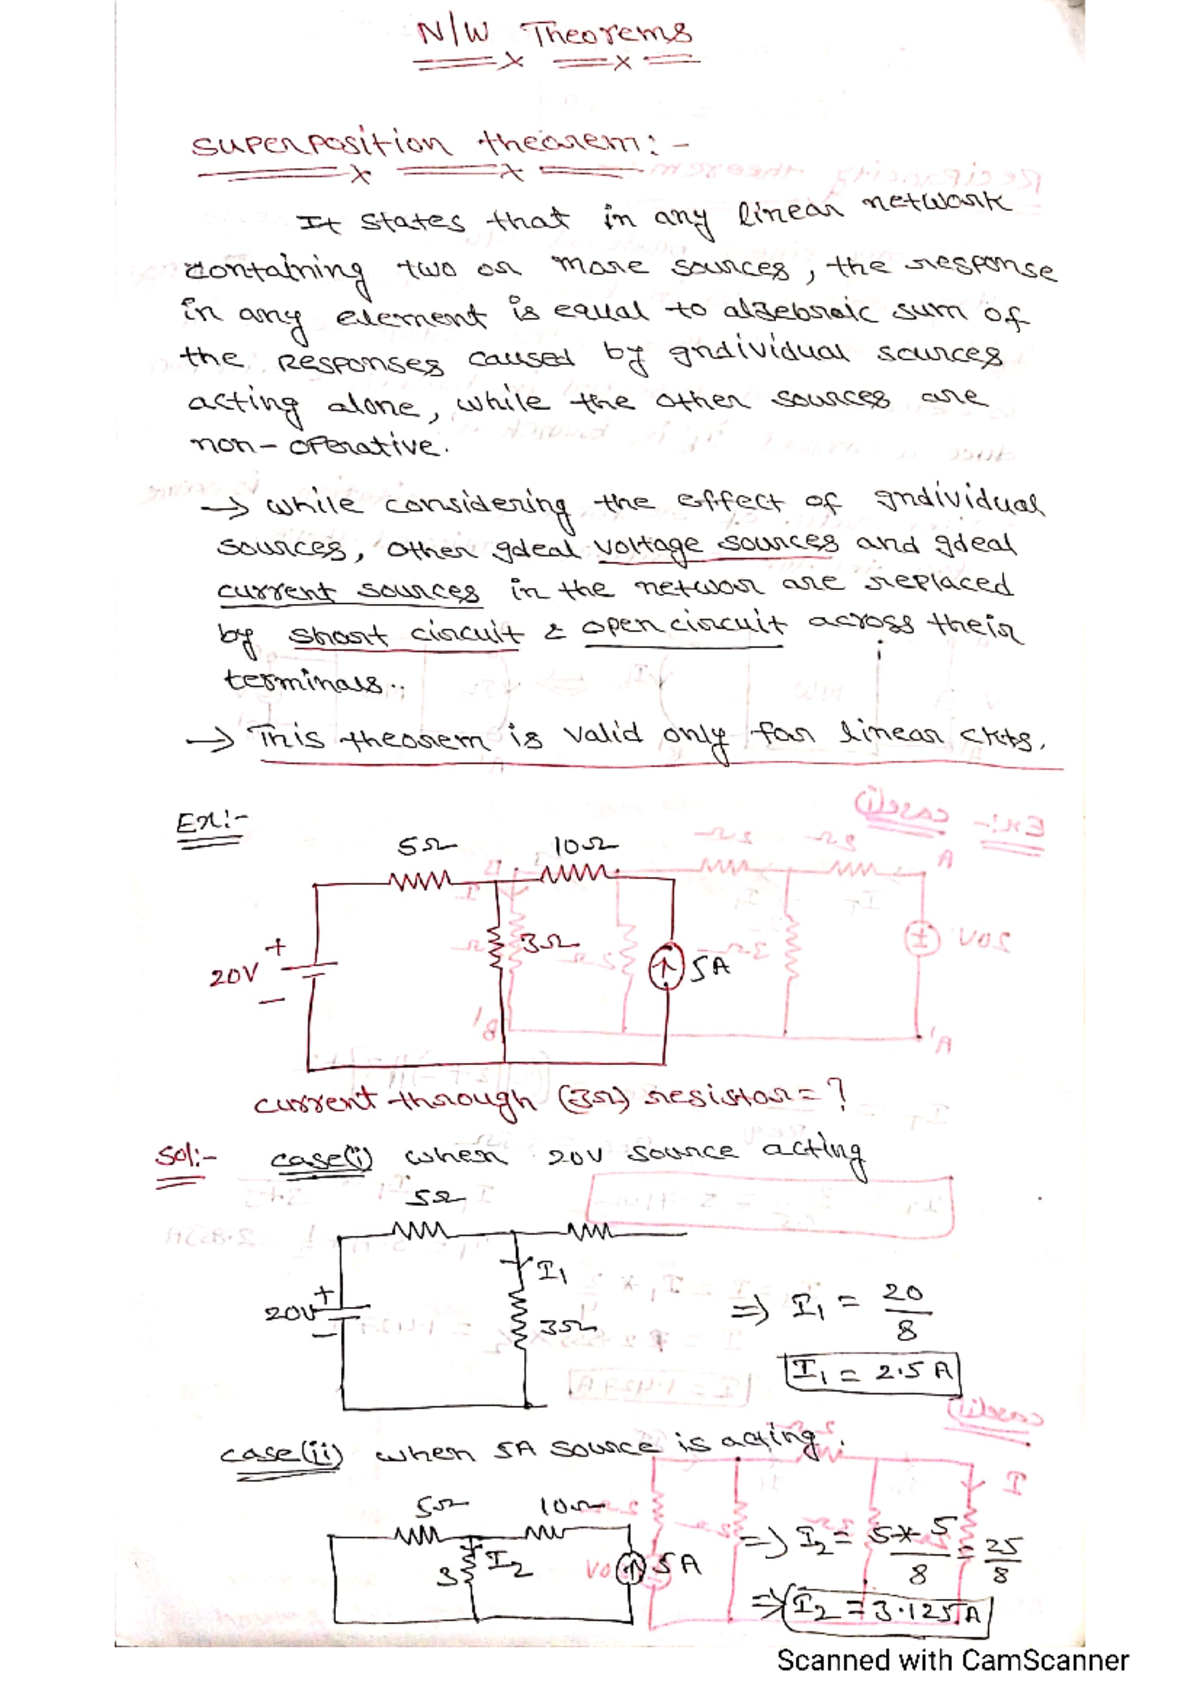 N/W Theorems
Superposition theorem:-
It states that in any linear network
containing two or more sources, the response
in any element is equal to algebraic sum of
the Responses caused by Individual sources
acting alone, while the other sources are
non-operative.
→ while considering the effect of Individual
sources, other Ideal voltage sources and Ideal
current sources in the networ are replaced
by short circuit & open circuit across their
terminals.
→ This theorem is valid only for linear ckts.
Ex:-
5Ω 10Ω
20V + - 3Ω 5A
current through (3Ω) resistor = ?
Sol:- case(i) when 20V source acting
5Ω
20V + - I1 3Ω
⇒ I1 = 20/8
I1 = 2.5 A
case(ii) when 5A source is acting.
5Ω 10Ω
3 I2 5A
⇒ I2 = 5*5/8 = 25/8
⇒ I2 = 3.125A
Scanned with CamScanner